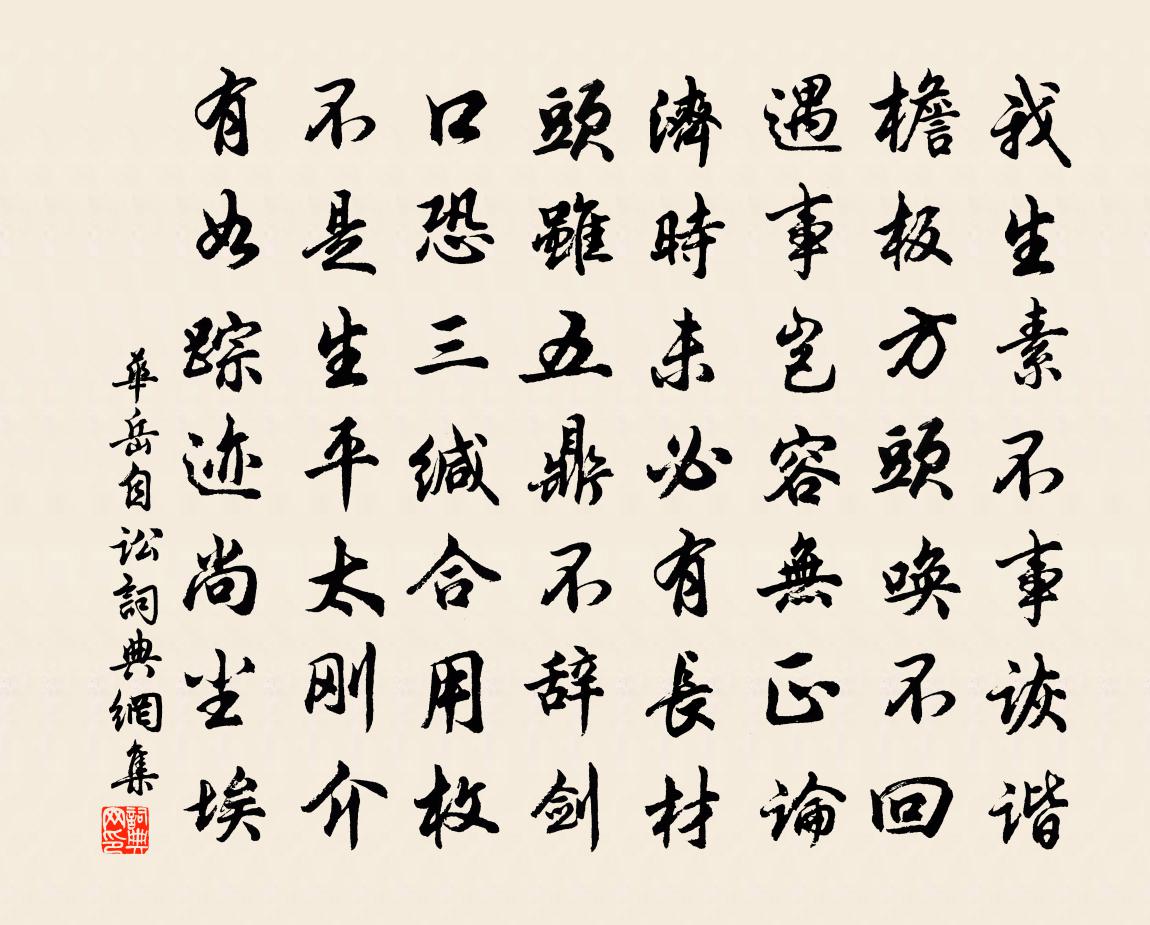 我生素不事诙谐
檐板方頭唤不回
遇事岂容無正論
濟時未必有長材
頭雖五鼎不辞剑
口恐三缄合用枚
不是生平太刚介
有如踪迹尚尘埃
華岳自讼詞典網集
詞典網印